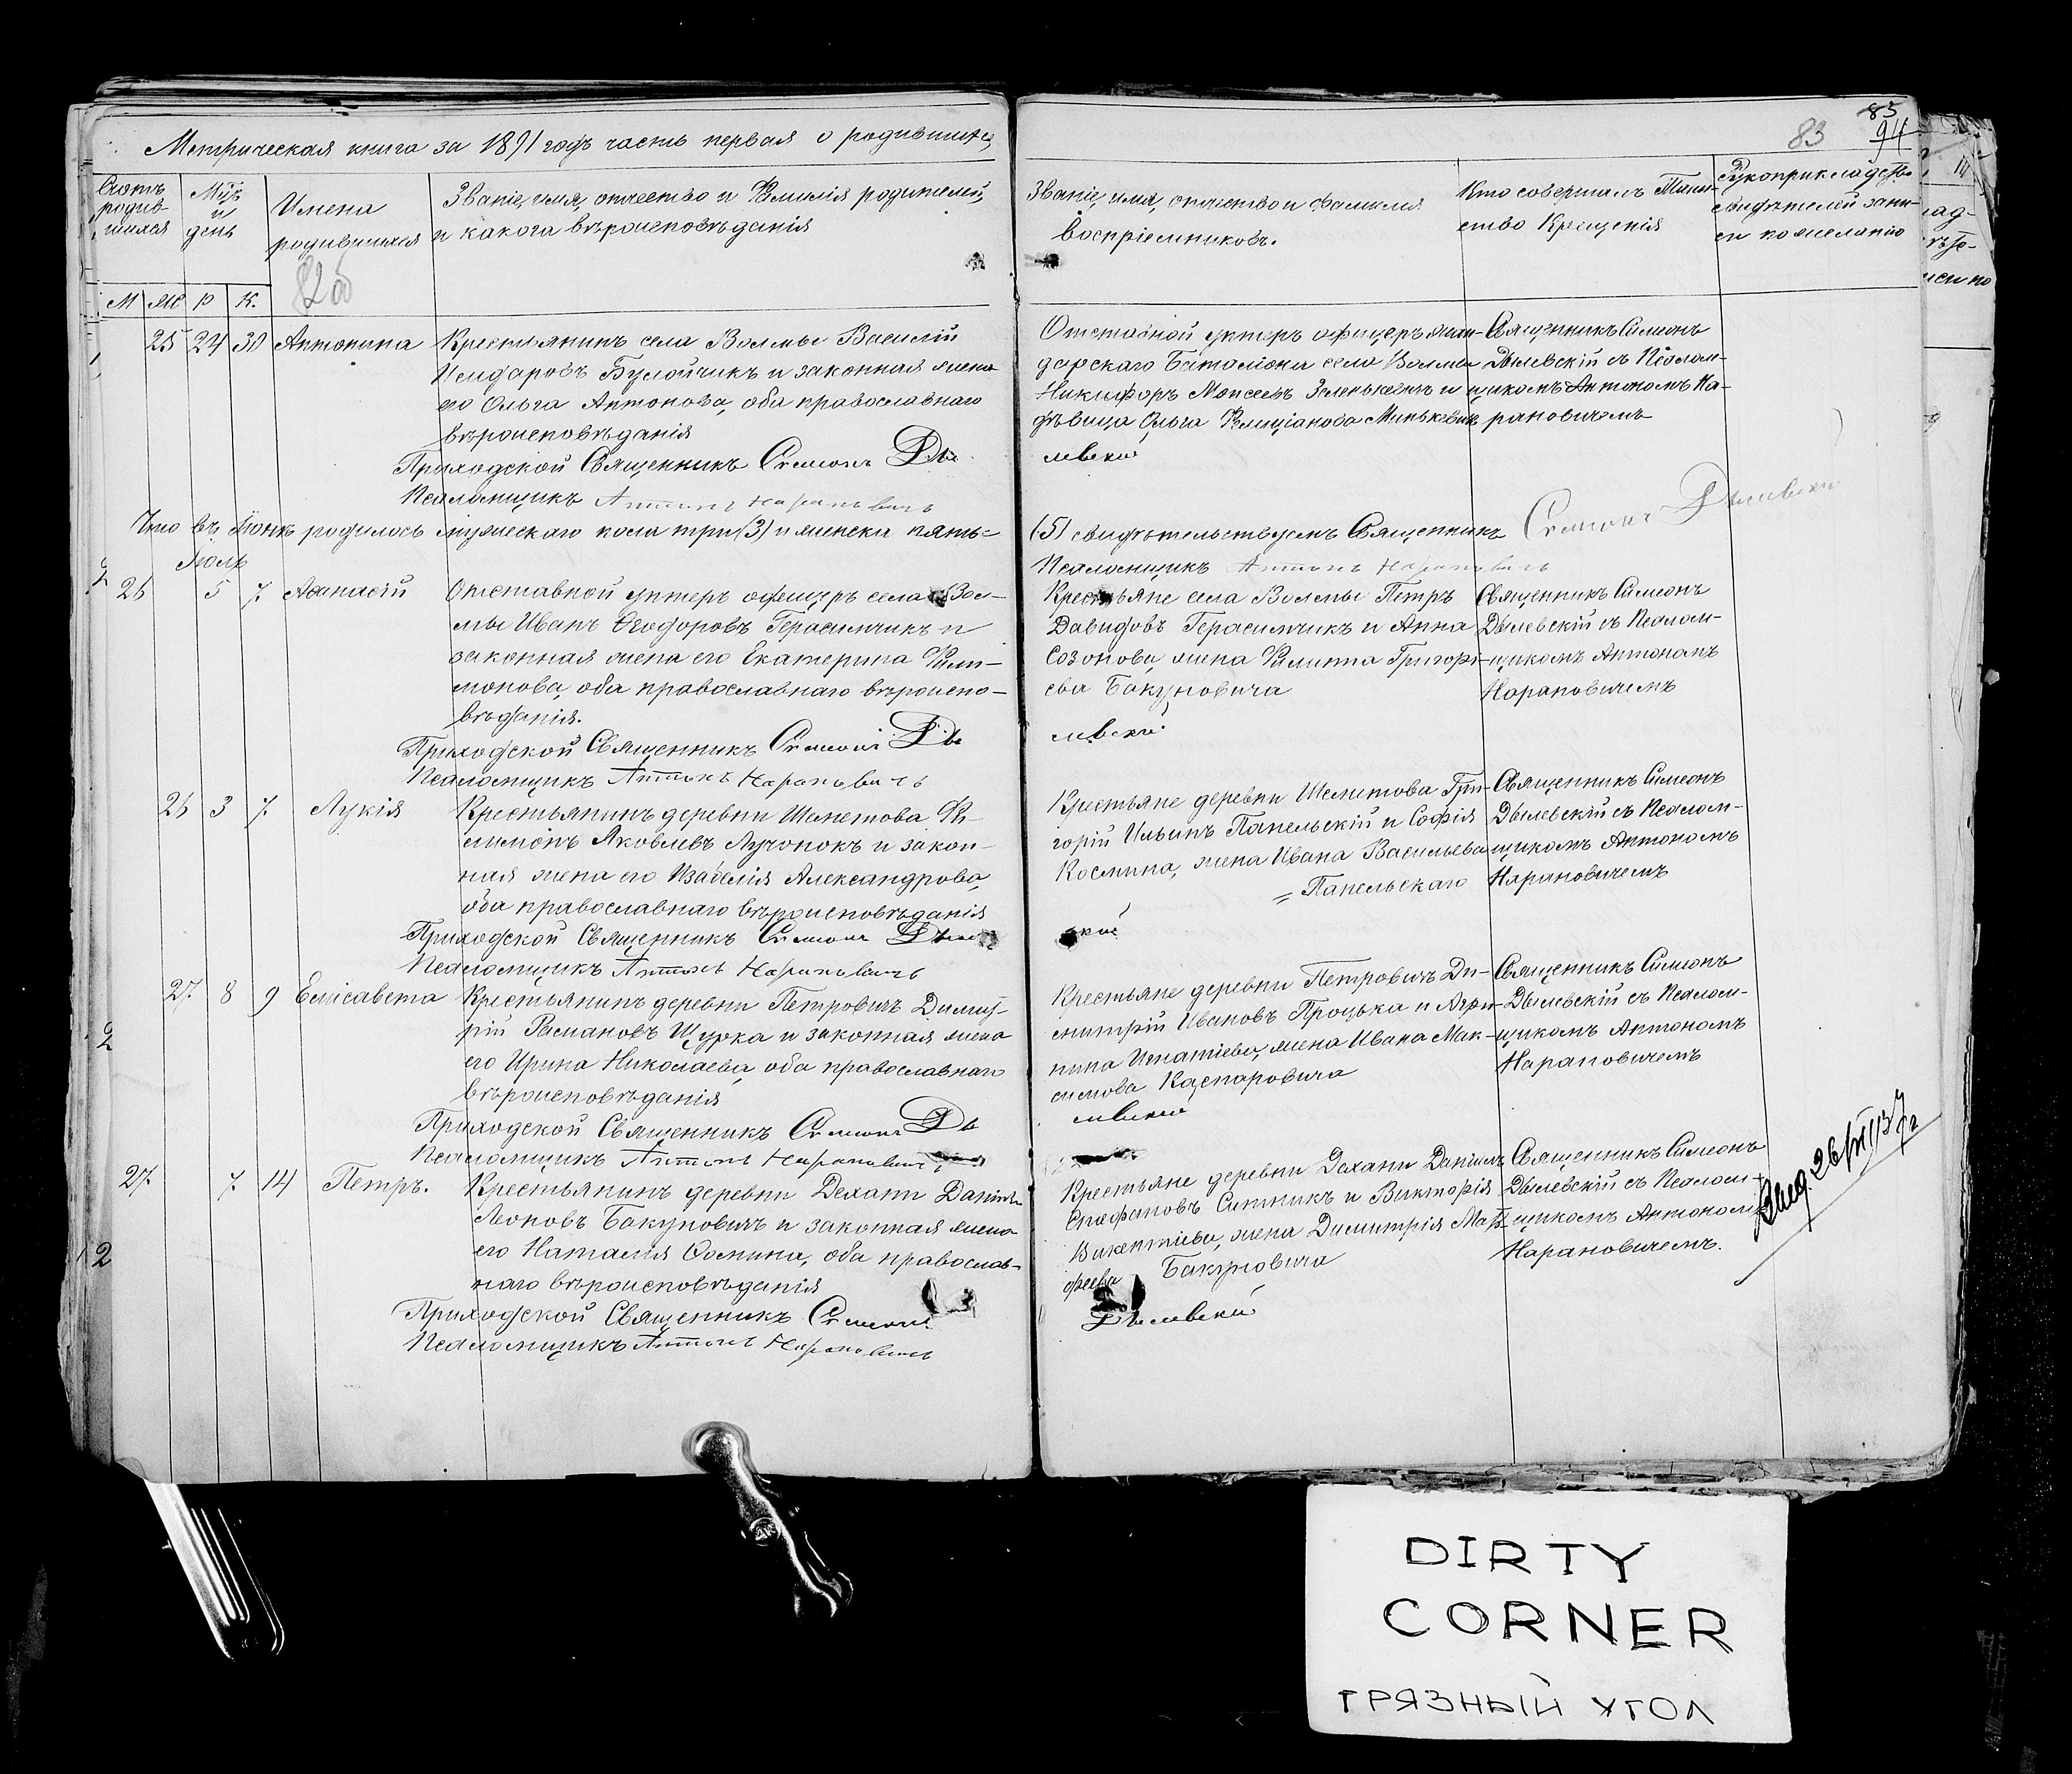 Метрическая книга за 1891 годъ часть первая о родившихся
83
94
83
Счотъ родив-шихся
Мѣс. и день
Имена родившихся
Званіе, имя, отчество и Фамилія родителей,
и какого вѣроисповѣданія
Званіе, имя, отчество и фамилія
воспріемниковъ.
Кто совершалъ Таин-
ство Крещенія
Рукоприкладство
свидѣтелей запи-
си по желанію
82об
М Ж Р К.
25 24 30 Антонина
Крестьянинъ села Волмы Василій
Булойчикъ и законная жена
его Ольга Антонова, оба православнаго
вѣроисповѣданія
Приходской Священникъ Симеонъ Ды
Псаломщикъ Антонъ Нарановичъ
Отставной унтеръ офицеръ жан-
дарскаго Баталіона села Волмы
Никифоръ Моисеевъ и
дѣвица Ольга Фелиціанова Минькевич
левскій
Священникъ Симеонъ
Дылевскій съ Псалом-
щикомъ Антономъ На-
рановичемъ
Итого въ Іюнѣ родилось мужескаго пола три (3) и женска пять=
(5) свидѣтельствуемъ Священникъ Симеонъ Дылевскій
Псаломщикъ Антонъ Нарановичъ
Іюль
26 5 7. Афанасій
Отставной унтеръ офицеръ села Вол-
мы Иванъ Ѳеодоровъ Герасимчикъ и
законная жена его Екатерина Фили-
монова, оба православнаго вѣроиспо-
вѣданія.
Приходской Священникъ Симеонъ Ды
Псаломщикъ Антонъ Нарановичъ
Крестьяне села Волмы Петръ
Давидовъ Герасимчикъ и Анна
Созонова, жена Филиппа Григорі-
ева Бакуновича
левскій
Священникъ Симеонъ
Дылевскій съ Псалом-
щикомъ Антономъ
Нарановичемъ
26 3 7. Лукія
Крестьянинъ деревни Шеметова Фи-
лимонъ Яковлевъ Лучонокъ и закон-
ная жена его Изабелія Александрова,
оба православнаго вѣроисповѣданія
Приходской Священникъ Симеонъ Дыле
Псаломщикъ Антонъ Нарановичъ
Крестьяне деревни Шеметова Гри-
горій Ильинъ Папельскій и Софія
Космина, жена Ивана Васильева
= Папельскаго
скій
Священникъ Симеонъ
Дылевскій съ Псалом-
щикомъ Антономъ
Нарановичемъ
27. 8 9 Елисавета
Крестьянинъ деревни Петровичъ Димит-
рій Романовъ Щурка и законная жена
его Ирина Николаева, оба православнаго
вѣроисповѣданія
Приходской Священникъ Симеонъ Ды
Псаломщикъ Антонъ Нарановичъ
Крестьяне деревни Петровичъ Ди-
митрій Ивановъ Процька и Агри-
пина Игнатіева, жена Ивана Мак-
симова Каспаровича
левскій
Священникъ Симеонъ
Дылевскій съ Псалом-
щикомъ Антономъ
Нарановичемъ
27. 7. 14 Петръ.
Крестьянинъ деревни Дехани Даніилъ
Леоновъ Бакуновичъ и законная жена
его Наталія Ѳомина, оба православ-
наго вѣроисповѣданія
Приходской Священникъ Симеонъ
Псаломщикъ Антонъ Нарановичъ
Крестьяне деревни Дехани Даніилъ
Стефановъ Ситникъ и Викторія
Викентіева, жена Димитрія Мат-
феева Бакуновича
Дылевскій
Священникъ Симеонъ
Дылевскій съ Псалом-
щикомъ Антономъ
Нарановичемъ.
DIRTY
CORNER
ГРЯЗНЫЙ УГОЛ